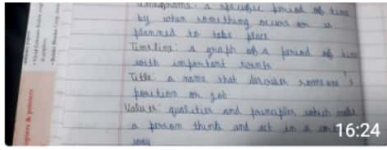 a specific period of time
by when something occurs or is
planned to take place
Timeline: a graph of a period of time
with important events
Title: a name that describes someone's
position or job
Values: qualities and principles which make
a person think and act in a
way
16:24